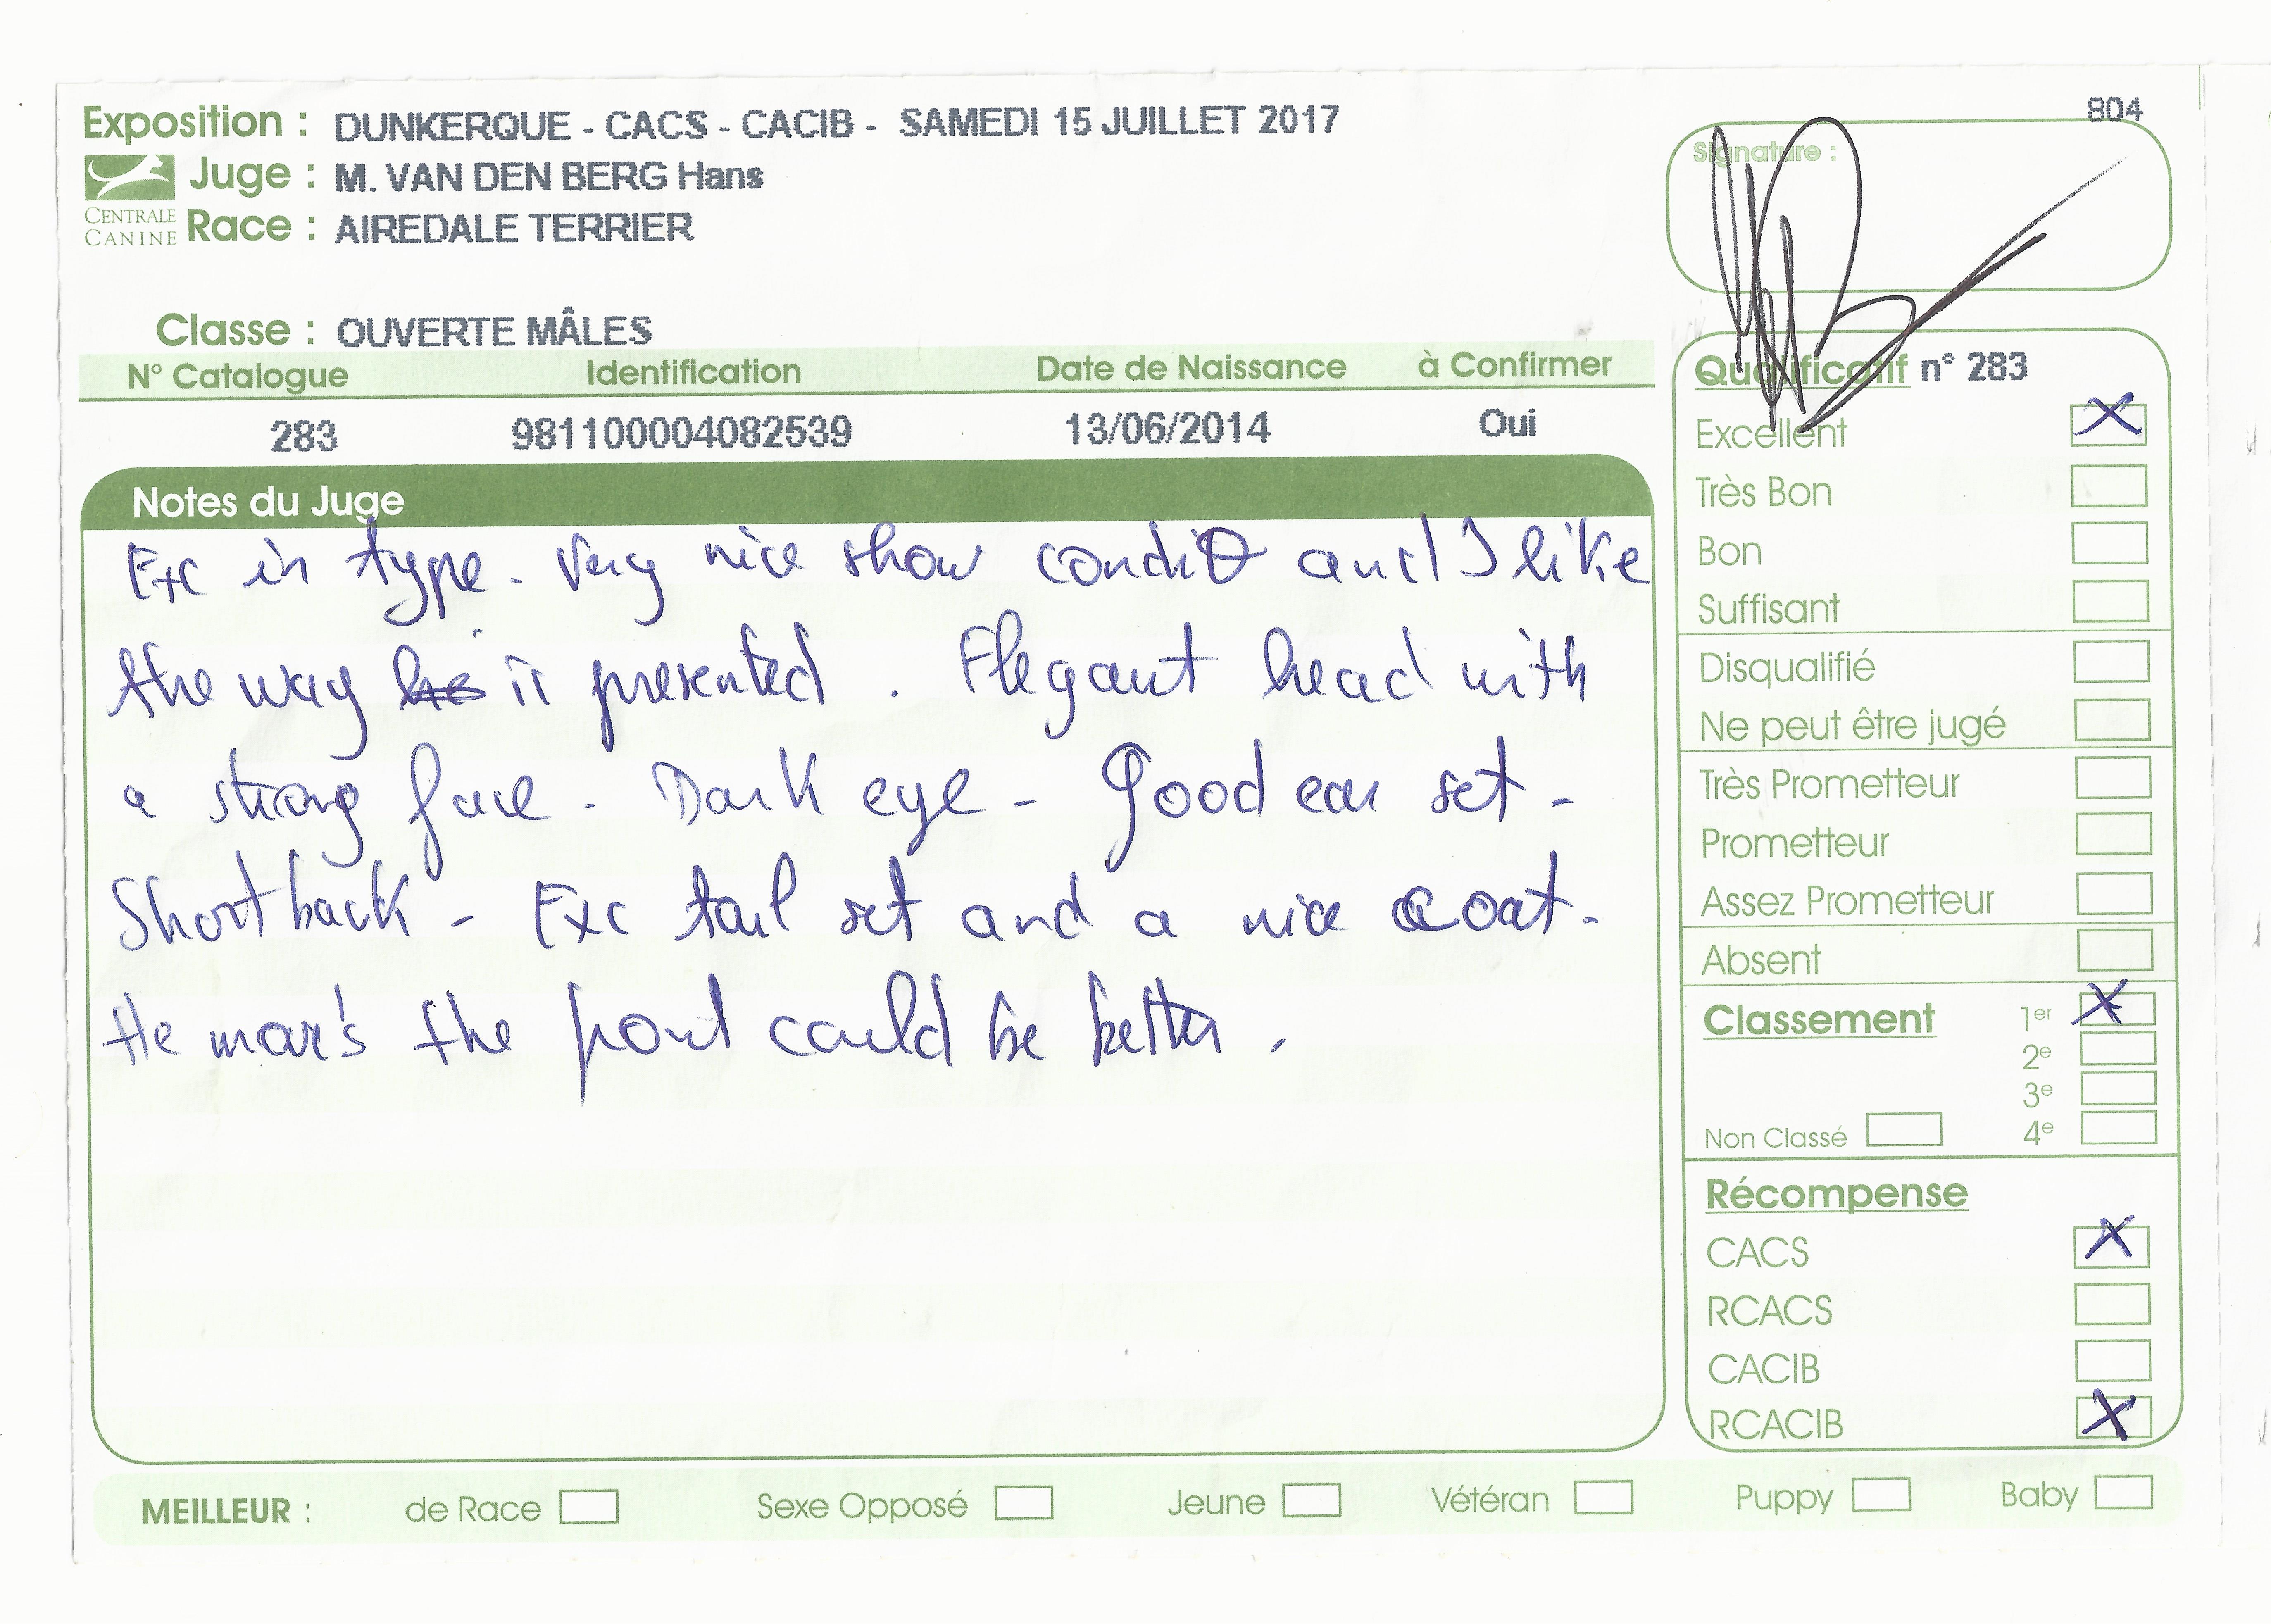 804
Exposition : DUNKERQUE - CACS - CACIB - SAMEDI 15 JUILLET 2017
Juge : M. VAN DEN BERG Hans
CENTRALE CANINE
Race : AIREDALE TERRIER
Signature :
Classe : OUVERTE MÂLES
N° Catalogue Identification Date de Naissance à Confirmer
283 981100004082539 13/06/2014 Oui
Notes du Juge
Exc in type. Very nice show and I like
the way is presented. Elegant head with
a strong face. Dark eye - good ear set -
Short back - Exc tail set and a nice coat -
He the could be better.
Qualificatif n° 283
Excellent X
Très Bon
Bon
Suffisant
Disqualifié
Ne peut être jugé
Très Prometteur
Prometteur
Assez Prometteur
Absent
Classement 1er X
2e
3e
Non Classé 4e
Récompense
CACS X
RCACS
CACIB
RCACIB X
MEILLEUR : de Race Sexe Opposé Jeune Vétéran Puppy Baby